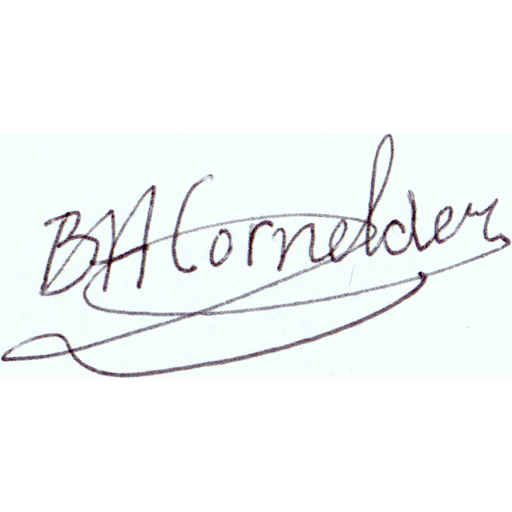 BH Cornelder